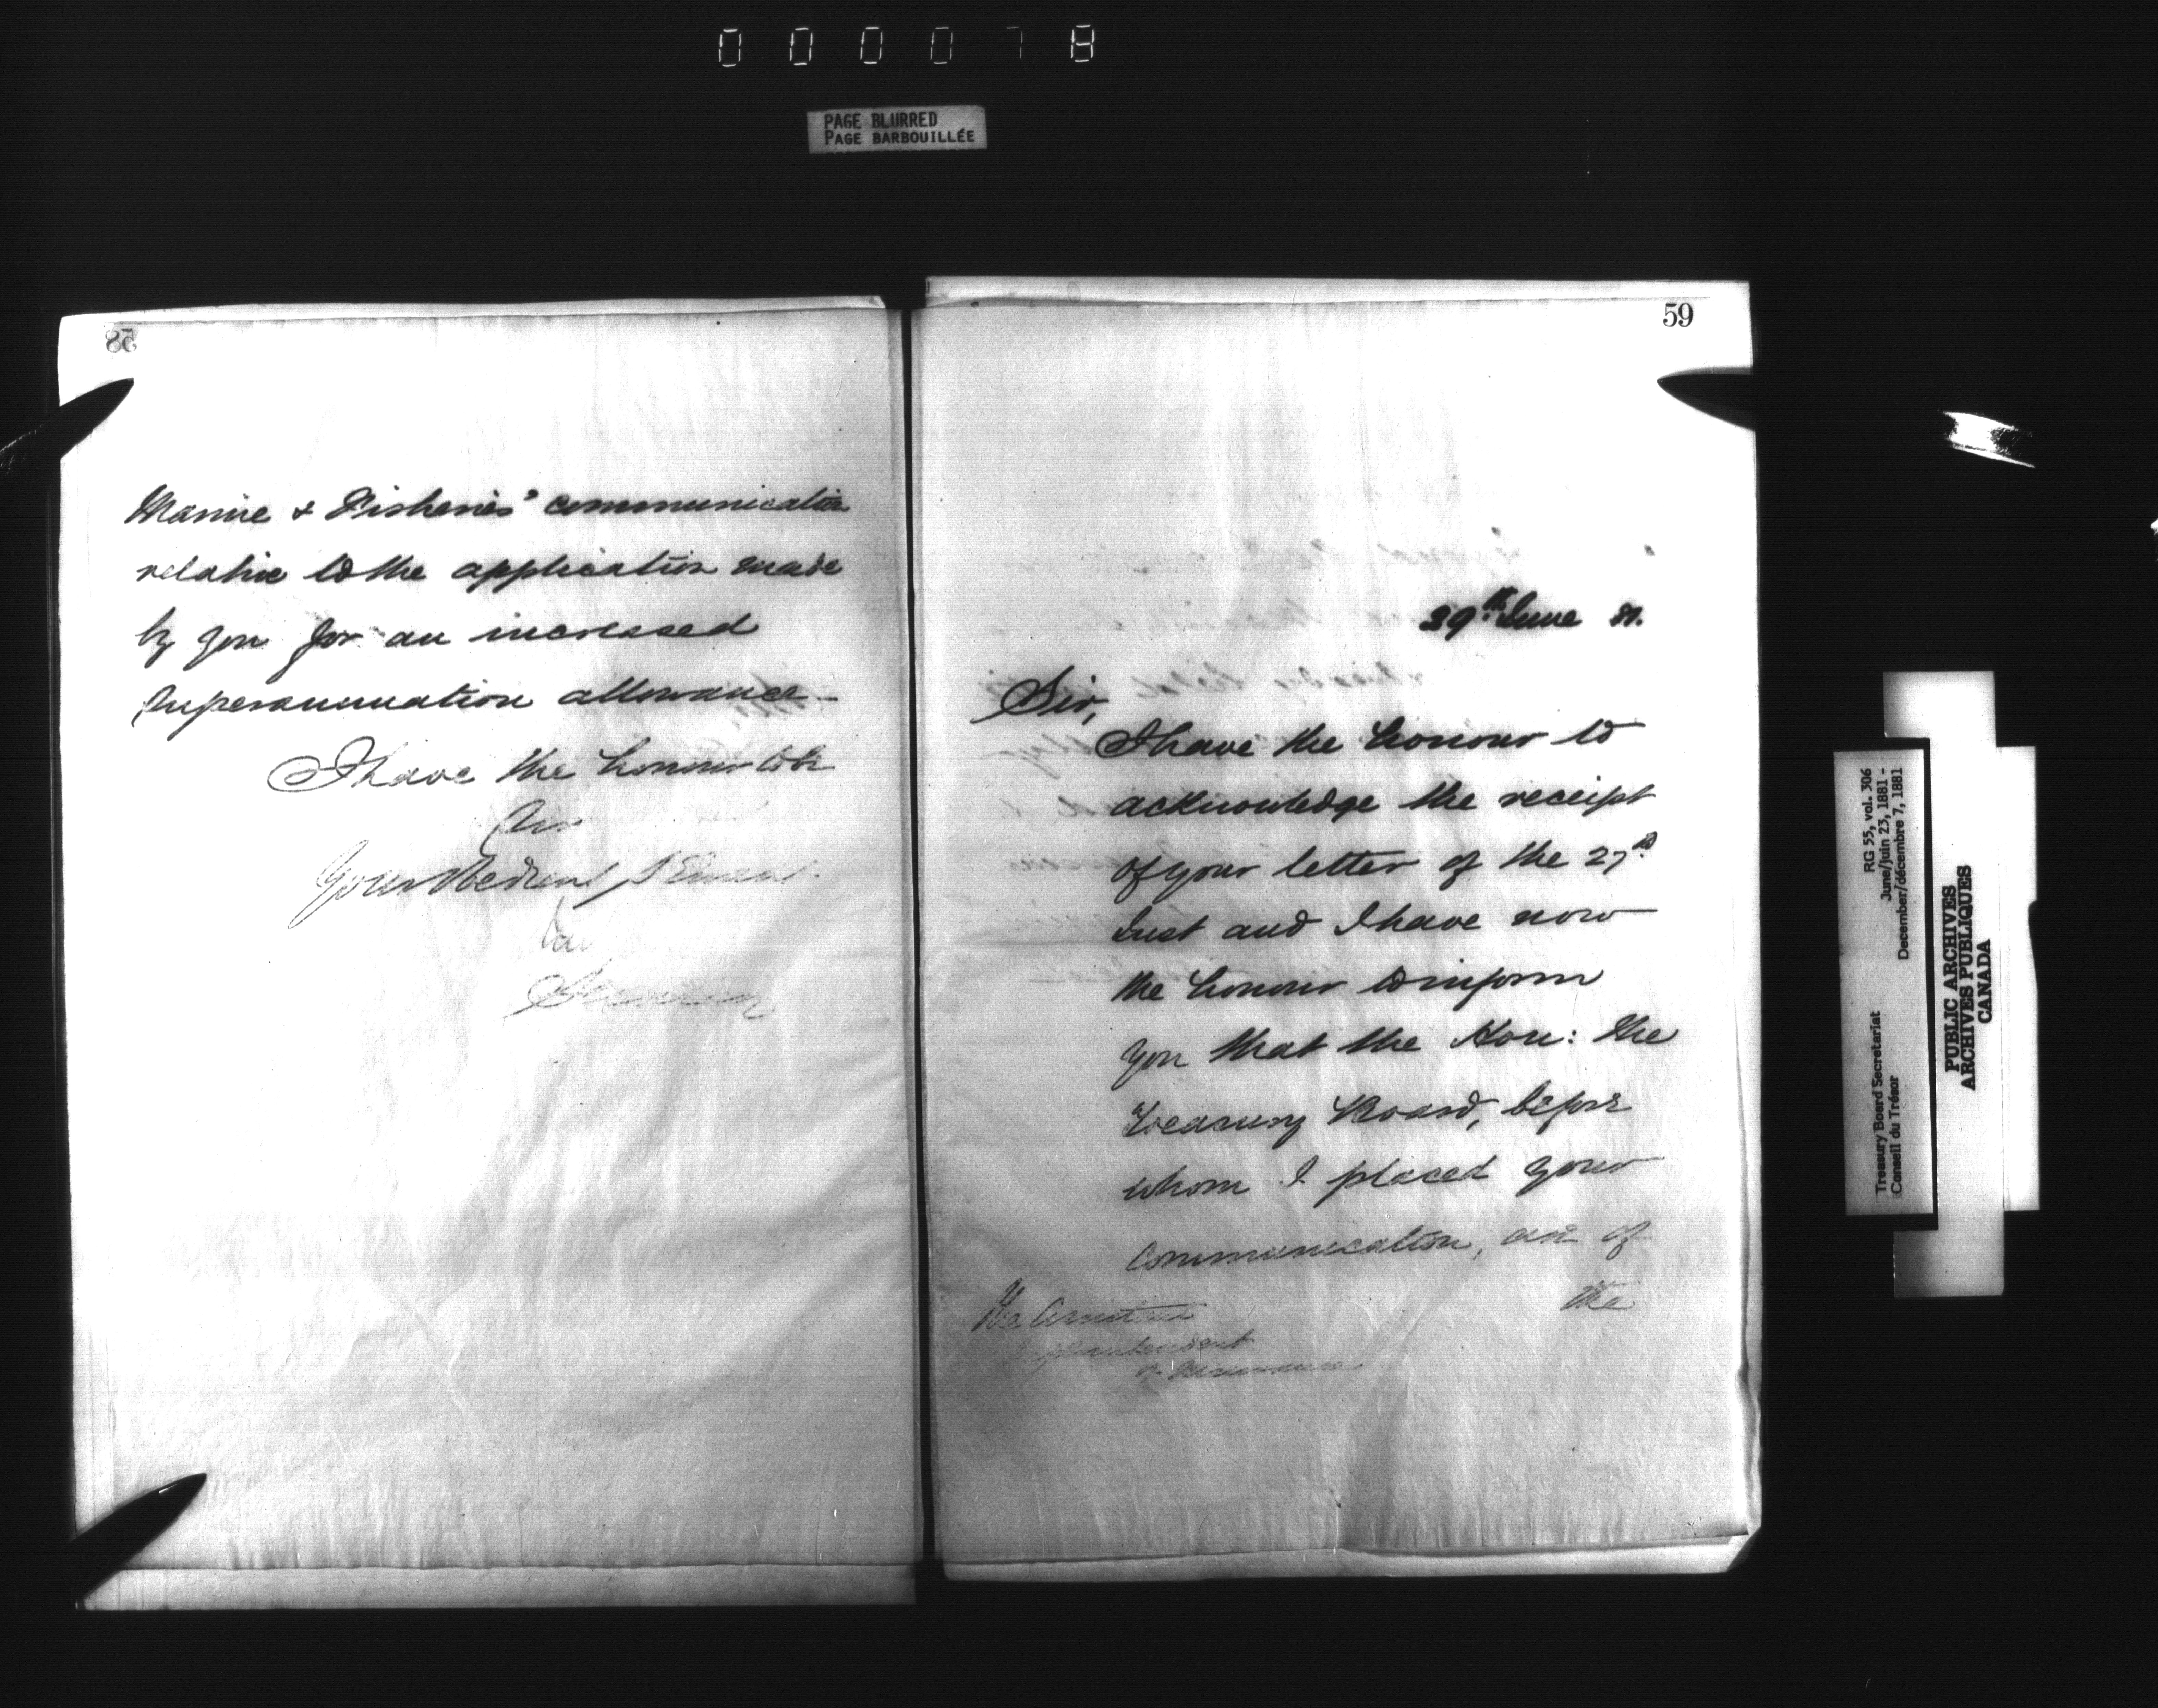 000078
PAGE BLURRED
PAGE BARBOUILLÉE
58
Marine & Fisheries' communication
relative to the application made
by you for an increased
superannuation allowance
I have the honour to be
Sir
Your obedient Servant
59
29th June 81.
Sir,
I have the honour to
acknowledge the receipt
of your letter of the 27th
Inst and I have now
the honour to inform
you that the Hon: the
Treasury Board, before
whom I placed your
communication, are of
the
The
Superintendent
of Insurance
RG 55, vol. 306
June/juin 23, 1881 -
December/décembre 7, 1881
Treasury Board Secretariat
Conseil du Trésor
PUBLIC ARCHIVES
ARCHIVES PUBLIQUES
CANADA